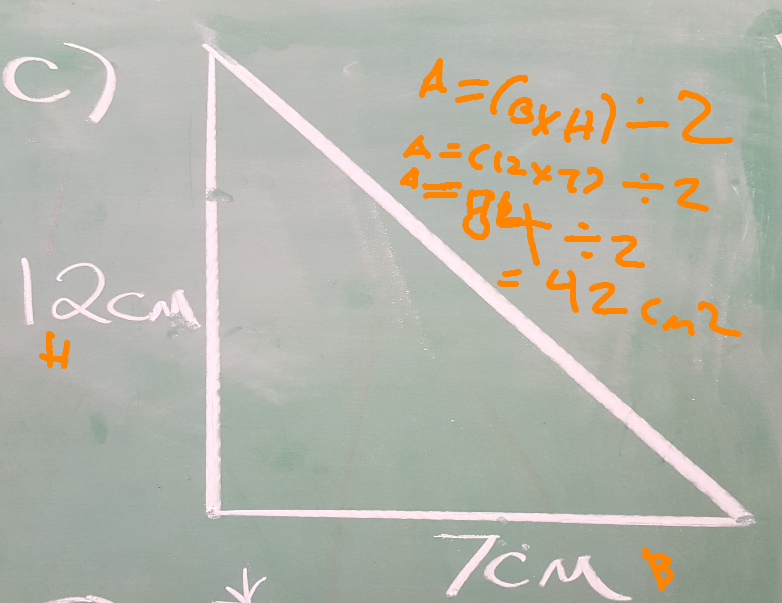 C)
A=(B×H)÷2
A=(12×7)÷2
A=84÷2
=42cm2
12cm
H
7cm
B